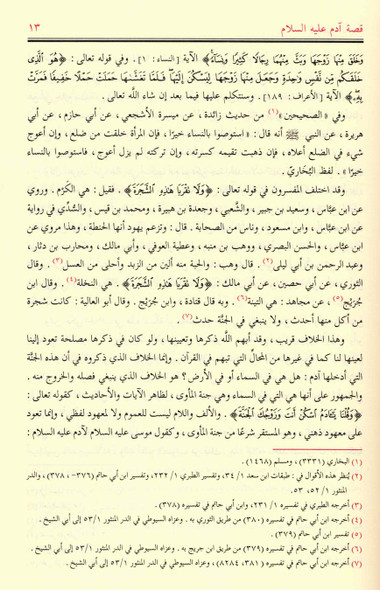 قصة آدم عليه السلام ١٣
وَخَلَقَ مِنْهَا زَوْجَهَا وَبَثَّ مِنْهُمَا رِجَالًا كَثِيرًا وَنِسَاءً﴾ الآية [النساء: ١] . وفي قوله تعالى : ﴿هُوَ الَّذِي
خَلَقَكُم مِّن نَّفْسٍ وَاحِدَةٍ وَجَعَلَ مِنْهَا زَوْجَهَا لِيَسْكُنَ إِلَيْهَا فَلَمَّا تَغَشَّاهَا حَمَلَتْ حَمْلًا خَفِيفًا فَمَرَّتْ
بِهِ﴾ الآية [الأعراف: ١٨٩] . وسنتكلم عليها فيما بعد إن شاء الله تعالى .
وفي «الصحيحين»(١) من حديث زائدة ، عن ميسرة الأشجعي ، عن أبي حازم ، عن أبي
هريرة ، عن النبي ﷺ أنه قال : «استوصوا بالنساء خيرًا ، فإن المرأة خلقت من ضلع ، وإن أعوج
شيء في الضلع أعلاه ، فإن ذهبت تقيمه كسرته ، وإن تركته لم يزل أعوج ، فاستوصوا بالنساء
خيرًا» . لفظ البُخَاريّ .
وقد اختلف المفسرون في قوله تعالى : ﴿وَلَا تَقْرَبَا هَذِهِ الشَّجَرَةَ﴾ . فقيل : هي الكَرْم . وروي
عن ابن عبَّاس ، وسعيد بن جبير ، والشَّعبي ، وجعدة بن هبيرة ، ومحمد بن قيس ، والسُّدِّي في رواية
عن ابن عبَّاس ، وابن مسعود ، وناس من الصحابة . قال : وتزعم يهود أنها الحنطة ، وهذا مروي عن
ابن عبَّاس ، والحسن البصري ، ووهب بن منبه ، وعطية العوفي ، وأبي مالك ، ومحارب بن دثار ،
وعبد الرحمن بن أبي ليلى(٢) . قال وهب : والحبة منه ألين من الزبد وأحلى من العسل(٣) . وقال
الثوري ، عن أبي حصين ، عن أبي مالك : ﴿وَلَا تَقْرَبَا هَذِهِ الشَّجَرَةَ﴾ . هي النخلة(٤) . وقال ابن
جُرَيْج(٥) ، عن مجاهد : هي التينة(٦) . وبه قال قتادة ، وابن جُرَيْج . وقال أبو العالية : كانت شجرة
من أكل منها أحدث ، ولا ينبغي في الجنَّة حدث(٧) .
وهذا الخلاف قريب ، وقد أبهم الله ذكرها وتعيينها ، ولو كان في ذكرها مصلحة تعود إلينا
لعينها لنا كما في غيرها من المحالّ التي تبهم في القرآن . وإنما الخلاف الذي ذكروه في أن هذه الجنَّة
التي أدخلها آدم : هل هي في السماء أو في الأرض ؟ هو الخلاف الذي ينبغي فصله والخروج منه .
والجمهور على أنها هي التي في السماء وهي جنة المأوى ، لظاهر الآيات والأحاديث ، كقوله تعالى :
﴿وَقُلْنَا يَا آدَمُ اسْكُنْ أَنتَ وَزَوْجُكَ الْجَنَّةَ﴾ . والألف واللام ليست للعموم ولا لمعهود لفظي ، وإنما تعود
على معهود ذهني ، وهو المستقر شرعًا من جنة المأوى ، وكقول موسى عليه السلام لآدم عليه السلام :
(١) البخاري (٣٣٣١) ، ومسلم (١٤٦٨) .
(٢) يُنظر هذه الأقوال في : طبقات ابن سعد ١/ ٣٤، وتفسير الطبري ١/ ٢٣٢، وتفسير ابن أبي حاتم (٣٧٦- ، ٣٧٨) ، والدر
المنثور ١/ ٥٢، ٥٣.
(٣) أخرجه الطبري في تفسيره ١/ ٢٣١، وابن أبي حاتم في تفسيره (٣٧٨) .
(٤) أخرجه ابن أبي حاتم في تفسيره (٣٨٠) من طريق الثوري به . وعزاه السيوطي في الدر المنثور ١/ ٥٣ إلى أبي الشيخ .
(٥) تفسير ابن أبي حاتم (٣٧٩) .
(٦) أخرجه ابن أبي حاتم في تفسيره (٣٧٩) من طريق ابن جريج به . وعزاه السيوطي في الدر المنثور ١/ ٥٣ إلى أبي الشيخ .
(٧) أخرجه ابن أبي حاتم في تفسيره (٣٨١، ٨٢٨٤) ، وعزاه السيوطي في الدر المنثور ١/ ٥٣ إلى أبي الشيخ .